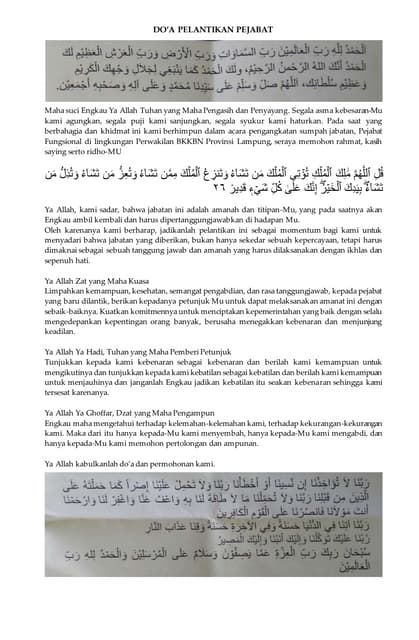 DO'A PELANTIKAN PEJABAT
الْحَمْدُ للهِ رَبِّ الْعَالَمِيْنَ رَبِّ السَّمَاوَاتِ وَرَبِّ الْأَرْضِ وَرَبِّ الْعَرْشِ الْعَظِيْمِ لَكَ
الْحَمْدُ أَنَّكَ اللهُ الرَّحْمنُ الرَّحِيْمُ، وَلَكَ الْحَمْدُ كَمَا يَنْبَغِي لِجَلَالِ وَجْهِكَ الْكَرِيْمِ
وَعَظِيْمِ سُلْطَانِكَ، اللَّهُمَّ صَلِّ وَسَلِّمْ عَلَى سَيِّدِنَا مُحَمَّدٍ وَعَلَى آلِهِ وَصَحْبِهِ أَجْمَعِيْنَ.
Maha suci Engkau Ya Allah Tuhan yang Maha Pengasih dan Penyayang. Segala asma kebesaran-Mu
kami agungkan, segala puji kami sanjungkan, segala syukur kami haturkan. Pada saat yang
berbahagia dan khidmat ini kami berhimpun dalam acara pengangkatan sumpah jabatan, Pejabat
Fungsional di lingkungan Perwakilan BKKBN Provinsi Lampung, seraya memohon rahmat, kasih
saying serto ridho-MU
قُلِ اللَّهُمَّ مَالِكَ الْمُلْكِ تُؤْتِي الْمُلْكَ مَن تَشَاءُ وَتَنزِعُ الْمُلْكَ مِمَّن تَشَاءُ وَتُعِزُّ مَن تَشَاءُ وَتُذِلُّ مَن
تَشَاءُ ۖ بِيَدِكَ الْخَيْرُ ۖ إِنَّكَ عَلَىٰ كُلِّ شَيْءٍ قَدِيرٌ ٢٦
Ya Allah, kami sadar, bahwa jabatan ini adalah amanah dan titipan-Mu, yang pada saatnya akan
Engkau ambil kembali dan harus dipertanggungjawabkan di hadapan Mu.
Oleh karenanya kami berharap, jadikanlah pelantikan ini sebagai momentum bagi kami untuk
menyadari bahwa jabatan yang diberikan, bukan hanya sekedar sebuah kepercayaan, tetapi harus
dimaknai sebagai sebuah tanggung jawab dan amanah yang harus dilaksanakan dengan ikhlas dan
sepenuh hati.
Ya Allah Zat yang Maha Kuasa
Limpahkan kemampuan, kesehatan, semangat pengabdian, dan rasa tanggungjawab, kepada pejabat
yang baru dilantik, berikan kepadanya petunjuk Mu untuk dapat melaksanakan amanat ini dengan
sebaik-baiknya. Kuatkan komitmennya untuk menciptakan kepemerintahan yang baik dengan selalu
mengedepankan kepentingan orang banyak, berusaha menegakkan kebenaran dan menjunjung
keadilan.
Ya Allah Ya Hadi, Tuhan yang Maha Pemberi Petunjuk
Tunjukkan kepada kami kebenaran sebagai kebenaran dan berilah kami kemampuan untuk
mengikutinya dan tunjukkan kepada kami kebatilan sebagai kebatilan dan berilah kami kemampuan
untuk menjauhinya dan janganlah Engkau jadikan kebatilan itu seakan kebenaran sehingga kami
tersesat karenanya.
Ya Allah Ya Ghoffar, Dzat yang Maha Pengampun
Engkau maha mengetahui terhadap kelemahan-kelemahan kami, terhadap kekurangan-kekurangan
kami. Maka dari itu hanya kepada-Mu kami menyembah, hanya kepada-Mu kami mengabdi, dan
hanya kepada-Mu kami memohon pertolongan dan ampunan.
Ya Allah kabulkanlah do'a dan permohonan kami.
رَبَّنَا لَا تُؤَاخِذْنَا إِن نَّسِينَا أَوْ أَخْطَأْنَا رَبَّنَا وَلَا تَحْمِلْ عَلَيْنَا إِصْراً كَمَا حَمَلْتَهُ عَلَى
الَّذِينَ مِن قَبْلِنَا رَبَّنَا وَلَا تُحَمِّلْنَا مَا لَا طَاقَةَ لَنَا بِهِ وَاعْفُ عَنَّا وَاغْفِرْ لَنَا وَارْحَمْنَا
أَنتَ مَوْلَانَا فَانصُرْنَا عَلَى الْقَوْمِ الْكَافِرِينَ
رَبَّنَا آتِنَا فِي الدُّنْيَا حَسَنَةً وَفِي الْآخِرَةِ حَسَنَةً وَقِنَا عَذَابَ النَّارِ
رَبَّنَا عَلَيْكَ تَوَكَّلْنَا وَإِلَيْكَ أَنَبْنَا وَإِلَيْكَ الْمَصِيرُ
سُبْحَانَ رَبِّكَ رَبِّ الْعِزَّةِ عَمَّا يَصِفُوْنَ وَسَلَامٌ عَلَى الْمُرْسَلِيْنَ وَالْحَمْدُ للهِ رَبِّ
الْعَالَمِيْنَ